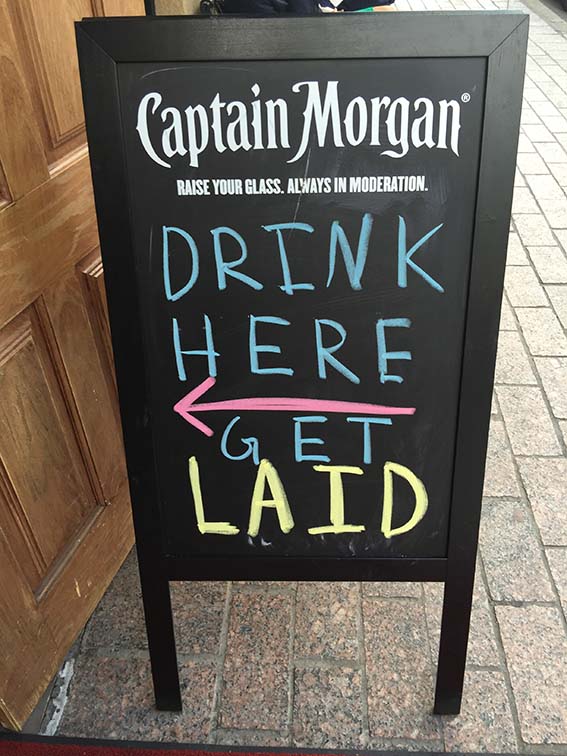 Captain Morgan®
RAISE YOUR GLASS. ALWAYS IN MODERATION.
DRINK
HERE
GET
LAID